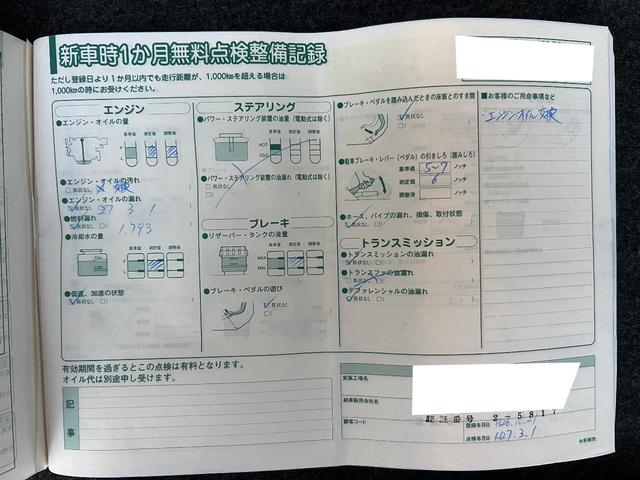 新車時1か月無料点検整備記録
ただし登録日より1か月以内でも走行距離が、1,000kmを超える場合は
1,000kmの時にお受けください。
エンジン
●エンジン・オイルの量
基準値 測定値 調整値
●エンジン・オイルの汚れ
異状なし 交換
●エンジン・オイルの漏れ
異状なし 27 3 1
●燃料漏れ
異状なし 1,793
●冷却水の量
基準値 測定値 調整値
●低速、加速の状態
異状なし
ステアリング
●パワー・ステアリング装置の油量(電動式は除く)
基準値 測定値 調整値
HOT
COLD
●パワー・ステアリング装置の油漏れ(電動式は除く)
異状なし
ブレーキ
●リザーバー・タンクの液量
基準値 測定値 調整値
MAX
MIN
●ブレーキ・ペダルの遊び
異状なし
●ブレーキ・ペダルを踏み込んだときの床板とのすき間
異状なし
●駐車ブレーキ・レバー(ペダル)の引きしろ(踏みしろ)
基準値 5~7 ノッチ
測定値 6 ノッチ
調整値 ノッチ
●ホース、パイプの漏れ、損傷、取付状態
異状なし
トランスミッション
●トランスミッションの油漏れ
異状なし
●トランスファの油漏れ
異状なし
●デファレンシャルの油漏れ
異状なし
■お客様のご用命事項など
エンジンオイル交換
有効期間を過ぎるとこの点検は有料となります。
オイル代は別途申し受けます。
記事
実施工場名
納車販売会社名
認証番号 2-5817
顧客コード
登録年月日
点検年月日 H27.3.1
お客様控